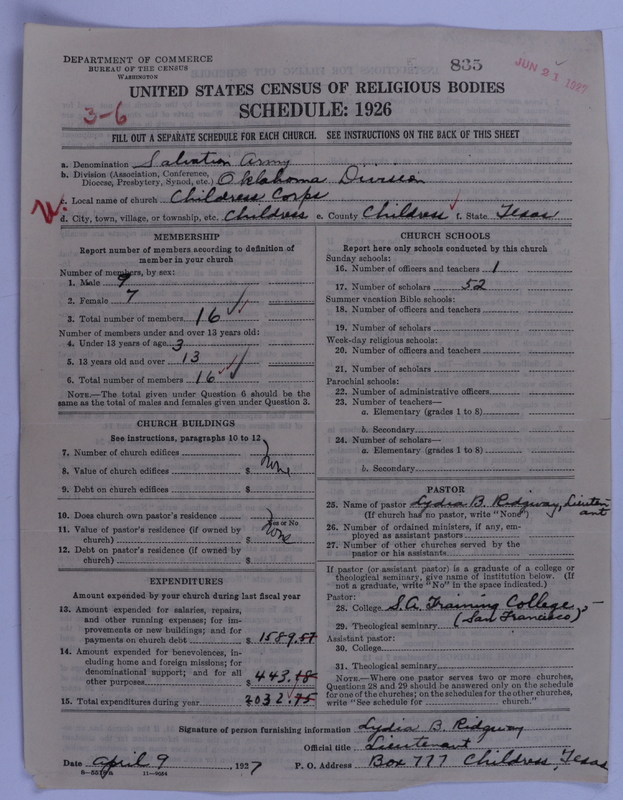 DEPARTMENT OF COMMERCE
BUREAU OF THE CENSUS
WASHINGTON
835
JUN 21 1927
3-6
UNITED STATES CENSUS OF RELIGIOUS BODIES
SCHEDULE: 1926
FILL OUT A SEPARATE SCHEDULE FOR EACH CHURCH. SEE INSTRUCTIONS ON THE BACK OF THIS SHEET
a. Denomination Salvation Army
b. Division (Association, Conference, Diocese, Presbytery, Synod, etc.) Oklahoma Division
c. Local name of church Childress Corps
d. City, town, village, or township, etc. Childress e. County Childress f. State Texas
MEMBERSHIP
Report number of members according to definition of
member in your church
Number of members, by sex:
1. Male 9
2. Female 7
3. Total number of members 16
Number of members under and over 13 years old:
4. Under 13 years of age 3
5. 13 years old and over 13
6. Total number of members 16
NOTE.—The total given under Question 6 should be the
same as the total of males and females given under Question 3.
CHURCH BUILDINGS
See instructions, paragraphs 10 to 12
7. Number of church edifices
8. Value of church edifices $ None
9. Debt on church edifices $
10. Does church own pastor's residence
Yes or No
11. Value of pastor's residence (if owned by
church) $ None
12. Debt on pastor's residence (if owned by
church) $
EXPENDITURES
Amount expended by your church during last fiscal year
13. Amount expended for salaries, repairs,
and other running expenses; for im-
provements or new buildings; and for
payments on church debt $ 1589.57
14. Amount expended for benevolences, in-
cluding home and foreign missions; for
denominational support; and for all
other purposes $ 443.18
15. Total expenditures during year 2032.75
CHURCH SCHOOLS
Report here only schools conducted by this church
Sunday schools:
16. Number of officers and teachers 1
17. Number of scholars 52
Summer vacation Bible schools:
18. Number of officers and teachers
19. Number of scholars
Week-day religious schools:
20. Number of officers and teachers
21. Number of scholars
Parochial schools:
22. Number of administrative officers
23. Number of teachers—
a. Elementary (grades 1 to 8)
b. Secondary
24. Number of scholars—
a. Elementary (grades 1 to 8)
b. Secondary
PASTOR
25. Name of pastor Lydia B. Ridgway, Lieuten
ant
(If church has no pastor, write "None")
26. Number of ordained ministers, if any, em-
ployed as assistant pastors
27. Number of other churches served by the
pastor or his assistants
If pastor (or assistant pastor) is a graduate of a college or
theological seminary, give name of institution below. (If
not a graduate, write "No" in the space indicated.)
Pastor:
28. College S.A. Training College,
29. Theological seminary (San Francisco)
Assistant pastor:
30. College
31. Theological seminary
NOTE.—Where one pastor serves two or more churches,
Questions 28 and 29 should be answered only on the schedule
for one of the churches; on the schedules for the other churches,
write "See schedule for church."
Signature of person furnishing information Lydia B. Ridgway
Official title Lieutenant
Date April 9, 1927 P. O. Address Box 777 Childress, Texas
11-9024